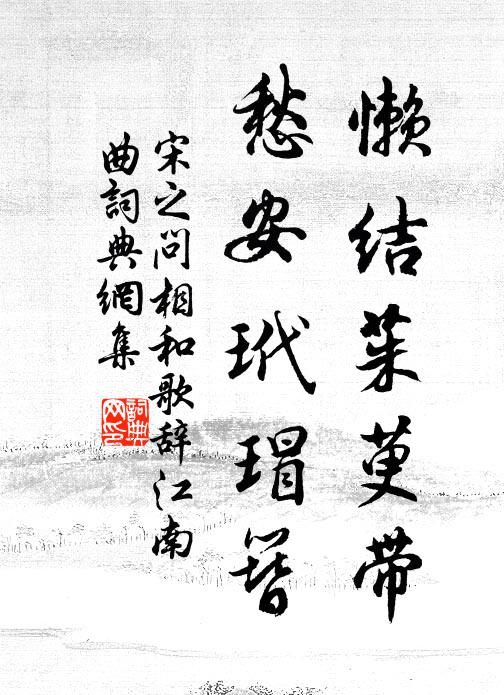 懒结茱萸带
愁安玳瑁簪
宋之问相和歌辞江南
曲詞典網集
詞典
网印